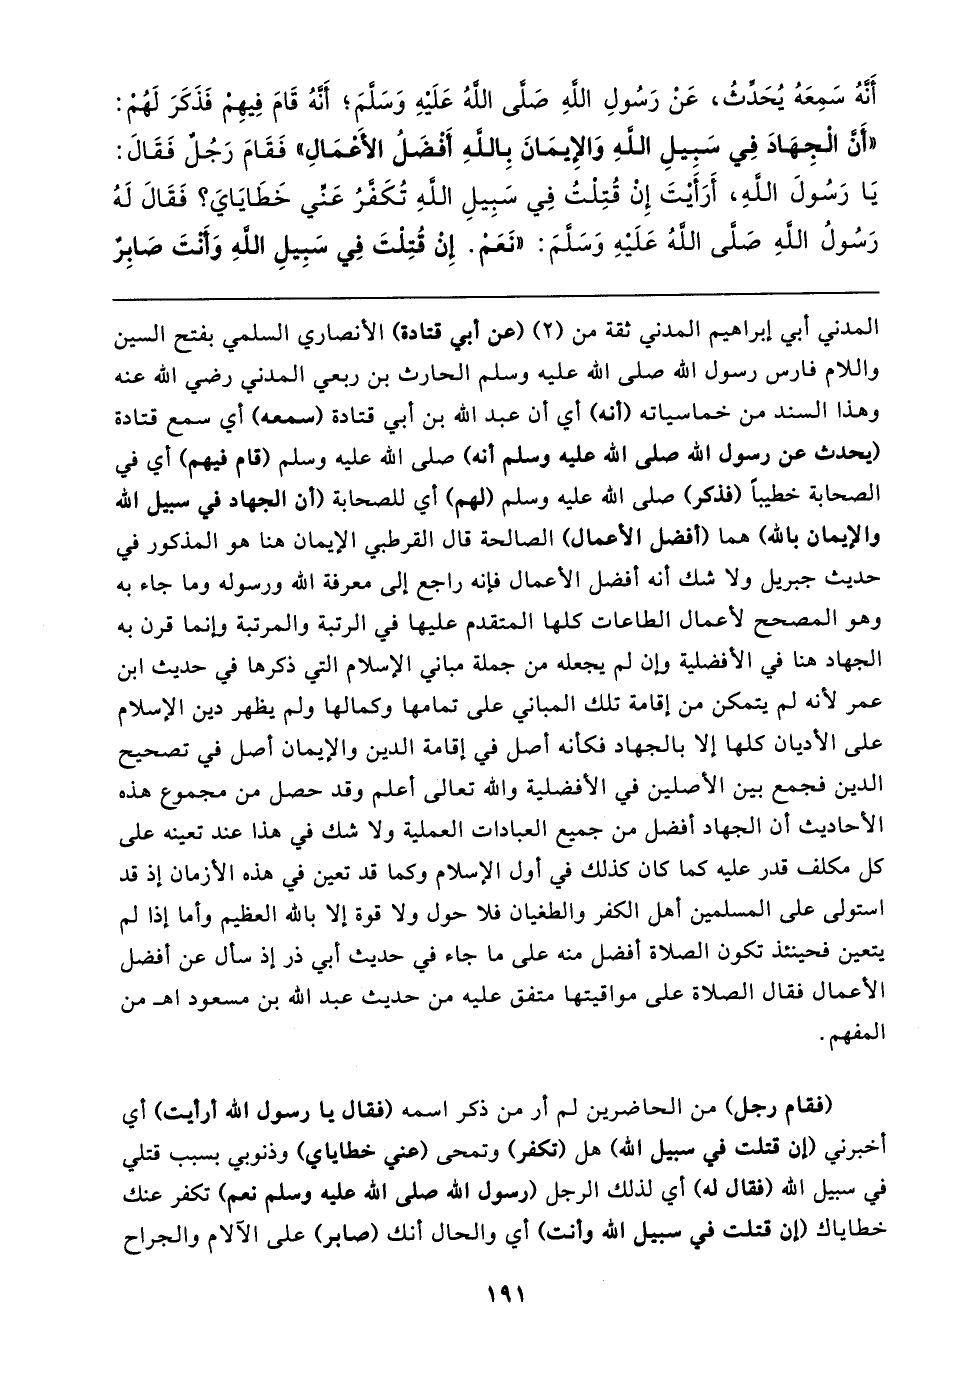 أَنَّهُ سَمِعَهُ يُحَدِّثُ، عَنْ رَسُولِ اللَّهِ صَلَّى اللَّهُ عَلَيْهِ وَسَلَّمَ؛ أَنَّهُ قَامَ فِيهِمْ فَذَكَرَ لَهُمْ:
«أَنَّ الْجِهَادَ فِي سَبِيلِ اللَّهِ وَالإِيمَانَ بِاللَّهِ أَفْضَلُ الأَعْمَالِ» فَقَامَ رَجُلٌ فَقَالَ:
يَا رَسُولَ اللَّهِ، أَرَأَيْتَ إِنْ قُتِلْتُ فِي سَبِيلِ اللَّهِ تُكَفَّرُ عَنِّي خَطَايَايَ؟ فَقَالَ لَهُ
رَسُولُ اللَّهِ صَلَّى اللَّهُ عَلَيْهِ وَسَلَّمَ: «نَعَمْ. إِنْ قُتِلْتَ فِي سَبِيلِ اللَّهِ وَأَنْتَ صَابِرٌ
المدني أبي إبراهيم المدني ثقة من (٢) (عن أبي قتادة) الأنصاري السلمي بفتح السين
واللام فارس رسول الله صلى الله عليه وسلم الحارث بن ربعي المدني رضي الله عنه
وهذا السند من خماسياته (أنه) أي أن عبد الله بن أبي قتادة (سمعه) أي سمع قتادة
(يحدث عن رسول الله صلى الله عليه وسلم أنه) صلى الله عليه وسلم (قام فيهم) أي في
الصحابة خطيباً (فذكر) صلى الله عليه وسلم (لهم) أي للصحابة (أن الجهاد في سبيل الله
والإيمان بالله) هما (أفضل الأعمال) الصالحة قال القرطبي الإيمان هنا هو المذكور في
حديث جبريل ولا شك أنه أفضل الأعمال فإنه راجع إلى معرفة الله ورسوله وما جاء به
وهو المصحح لأعمال الطاعات كلها المتقدم عليها في الرتبة والمرتبة وإنما قرن به
الجهاد هنا في الأفضلية وإن لم يجعله من جملة مباني الإسلام التي ذكرها في حديث ابن
عمر لأنه لم يتمكن من إقامة تلك المباني على تمامها وكمالها ولم يظهر دين الإسلام
على الأديان كلها إلا بالجهاد فكأنه أصل في إقامة الدين والإيمان أصل في تصحيح
الدين فجمع بين الأصلين في الأفضلية والله تعالى أعلم وقد حصل من مجموع هذه
الأحاديث أن الجهاد أفضل من جميع العبادات العملية ولا شك في هذا عند تعينه على
كل مكلف قدر عليه كما كان كذلك في أول الإسلام وكما قد تعين في هذه الأزمان إذ قد
استولى على المسلمين أهل الكفر والطغيان فلا حول ولا قوة إلا بالله العظيم وأما إذا لم
يتعين فحينئذ تكون الصلاة أفضل منه على ما جاء في حديث أبي ذر إذ سأل عن أفضل
الأعمال فقال الصلاة على مواقيتها متفق عليه من حديث عبد الله بن مسعود اهـ من
المفهم.
(فقام رجل) من الحاضرين لم أر من ذكر اسمه (فقال يا رسول الله أرأيت) أي
أخبرني (إن قتلت في سبيل الله) هل (تكفر) وتمحى (عني خطاياي) وذنوبي بسبب قتلي
في سبيل الله (فقال له) أي لذلك الرجل (رسول الله صلى الله عليه وسلم نعم) تكفر عنك
خطاياك (إن قتلت في سبيل الله وأنت) أي والحال أنك (صابر) على الآلام والجراح
١٩١